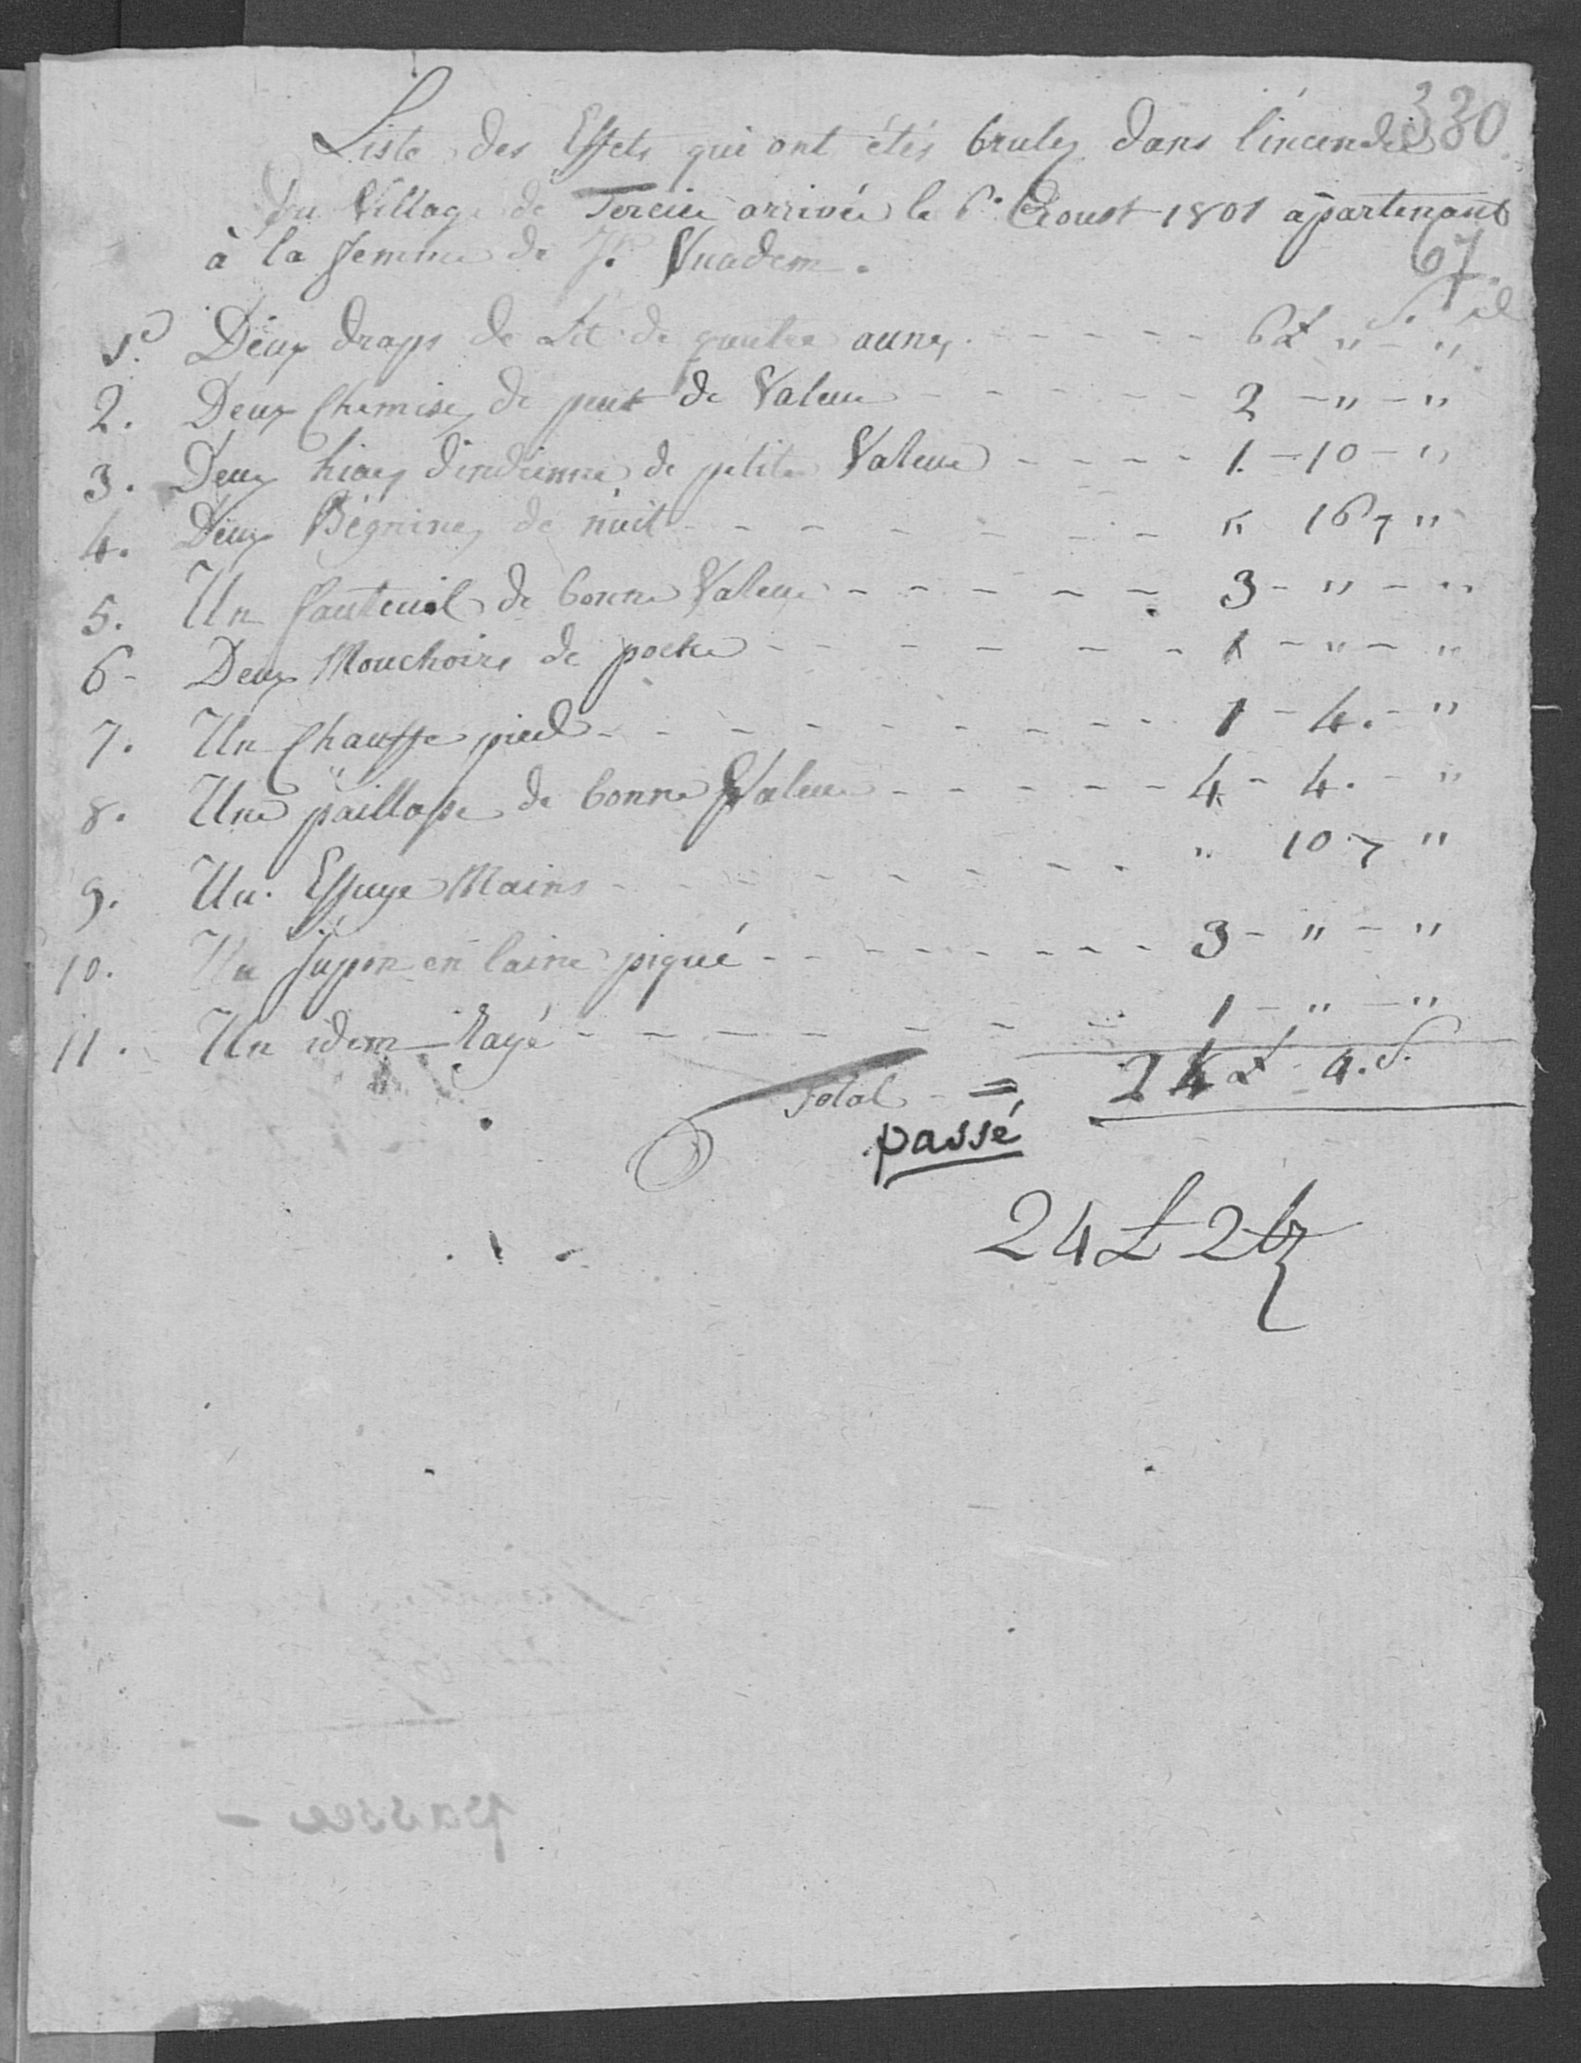 330
Liste des Effets qui ont étés brulez dans l'incendie
du Village de Fercier arrivée le 6e. Aoust 1801 apartenant
à la femme de Vuadem.
67.
£ S. d
1e. Deux draps de Lit de quatre aunes - - - - - 6 " - "
2. Deux Chemises de peut de Valeur - - - - - 2 - " - "
3. Deux d'indienne de petite Valeur - - - - 1. - 10 - "
4. Deux Béguines de nuit - - - - - - " 16 - "
5. Un fauteuil de bonne Valeur - - - - - 3 - " - "
6 - Deux Mouchoirs de poche - - - - - - 1 - " - "
7. Un Chauffe pied - - - - - - - - 1 - 4. - "
8. Une paillasse de bonne Valeur - - - - - 4 - 4. - "
9. Un Essuye Mains - - - - - - - - " 10 - "
10. Un Jupon en laine piqué - - - - - - - 3 - " - "
11. Un idem Rayé - - - - - - - - 1 - " - "
Total = 24 £ 4. S.
passé
24 £ 2 bz
passée -